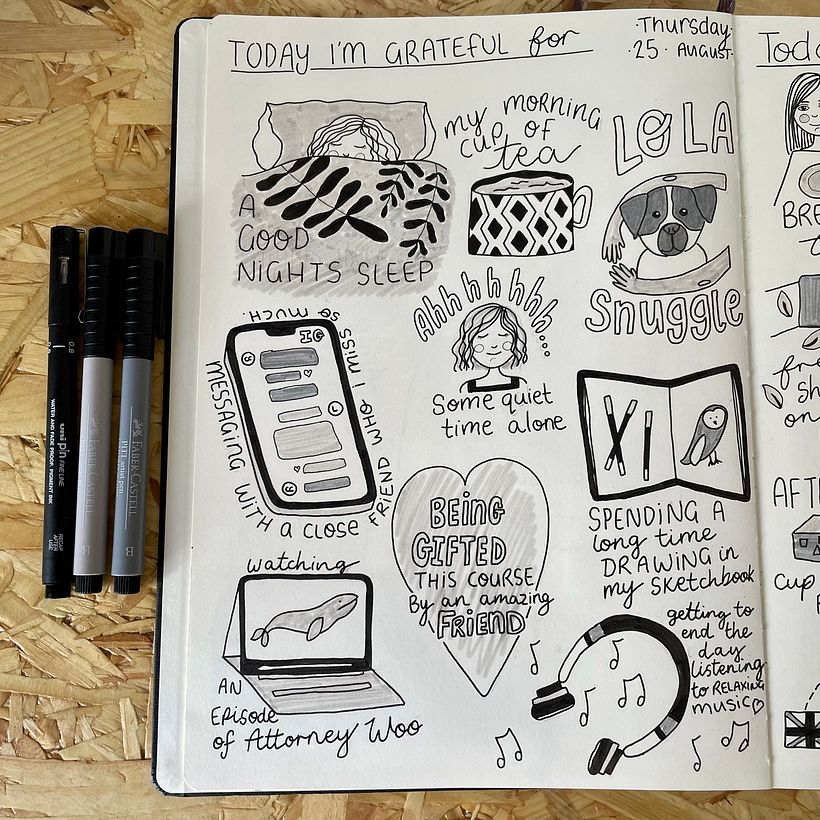 TODAY I'M GRATEFUL for
Thursday
·25· AUGUST·
A
GOOD
NIGHTS SLEEP
my MORNING
CUP OF
tea
LOLA
Snuggle
Ahhhhhhh...
Some quiet
time alone
MESSAGING WITH A CLOSE FRIEND WHO I MISS SO MUCH.
IG
L
SPENDING A
long time
DRAWING in
my SKETCHBOOK
BEING
GIFTED
THIS COURSE
By an amazing
FRIEND
watching
AN
EPISODE
of Attorney Woo
getting to
end the
day
listening
to RELAXING
music
uni pin FINE LINE
WATER AND FADE PROOF, PIGMENT INK
0.8
RECAP
AFTER
USE
FABER-CASTELL
FABER-CASTELL
PITT artist pen
B
B
cup